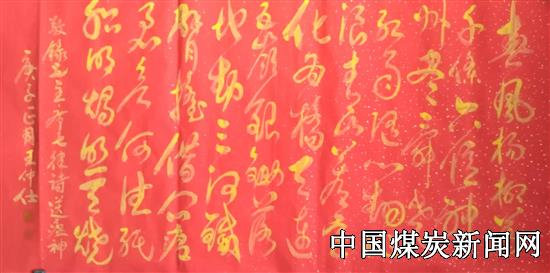 春风杨柳万
千条六亿神
州尽舜尧
红雨随心翻
浪青山着意
化为桥天连
五岭银锄落
地动三河铁
臂摇借问瘟
君欲何往纸
船明烛照天烧
敬录毛主席七律诗送瘟神
庚子正月王仲仕
中国煤炭新闻网